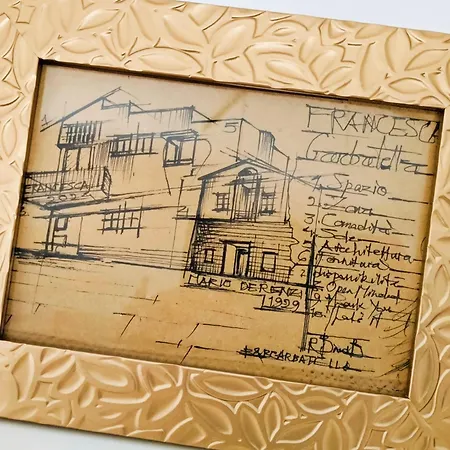 FRANCESCA
Garbatella
1 Spazio
2 Zona
3 Comodità
4 Sole
5 Architettura
6 Fornitura
7 Disponibilità
8 Open Mindest
9 Thank You
10
5
FRANCESCA
MARIO DE RENZI
1929
B&BGARBATELLA